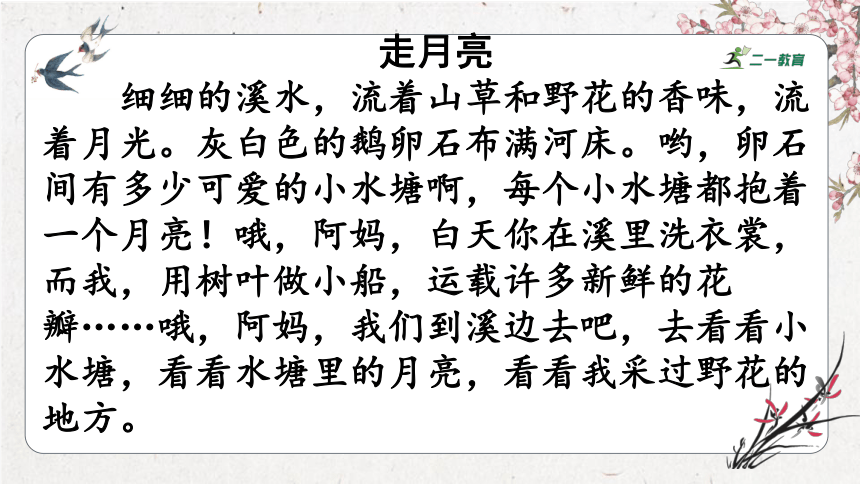 走月亮
二一教育
细细的溪水，流着山草和野花的香味，流
着月光。灰白色的鹅卵石布满河床。哟，卵石
间有多少可爱的小水塘啊，每个小水塘都抱着
一个月亮！哦，阿妈，白天你在溪里洗衣裳，
而我，用树叶做小船，运载许多新鲜的花
瓣……哦，阿妈，我们到溪边去吧，去看看小
水塘，看看水塘里的月亮，看看我采过野花的
地方。